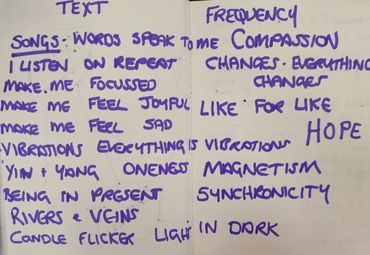 TEXT
SONGS - WORDS SPEAK TO ME
I LISTEN ON REPEAT
MAKE ME FOCUSSED
MAKE ME FEEL JOYFUL
MAKE ME FEEL SAD
VIBRATIONS EVERYTHING IS VIBRATIONS
YIN + YANG ONENESS
BEING IN PRESENT
RIVERS & VEINS
CANDLE FLICKER LIGHT IN DARK
FREQUENCY
COMPASSION
CHANGES - EVERYTHING
CHANGES
LIKE FOR LIKE
HOPE
MAGNETISM
SYNCHRONICITY